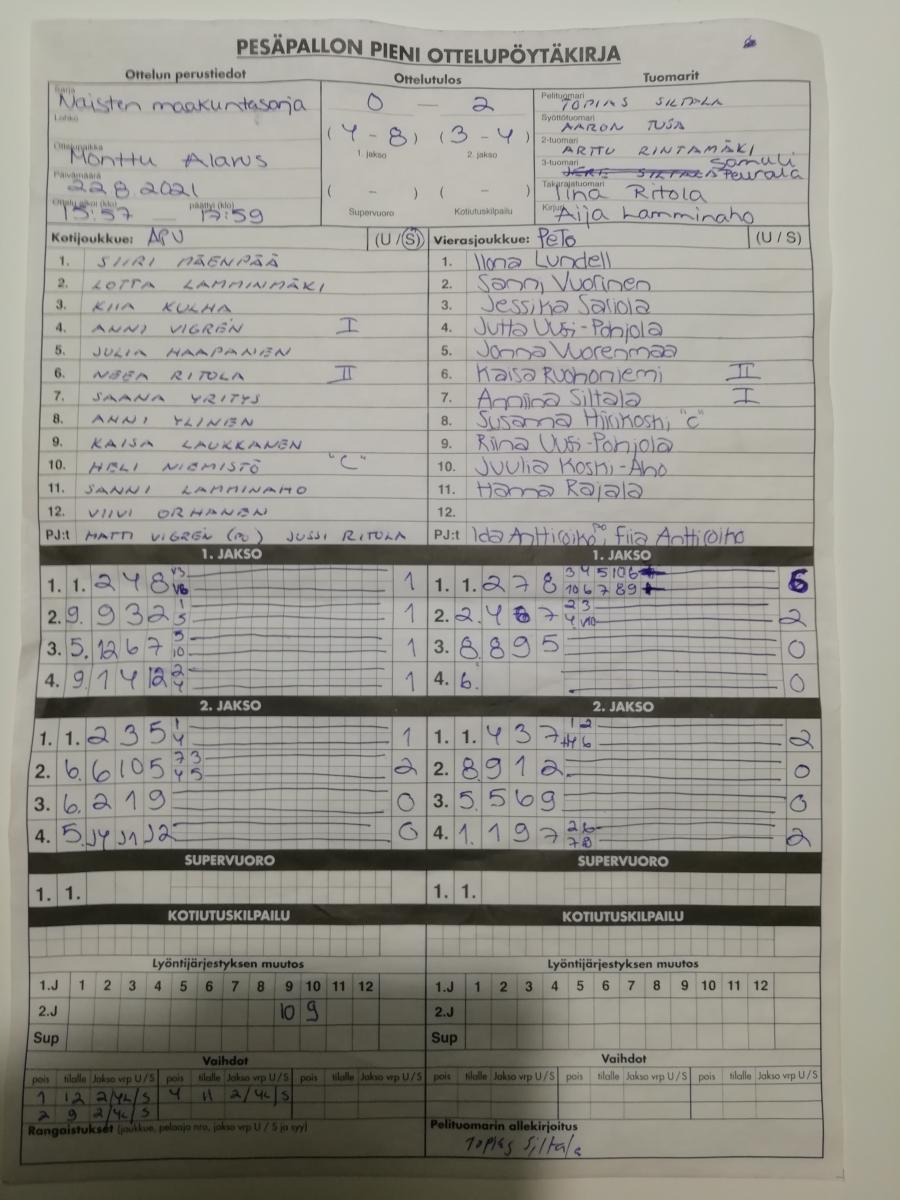 PESÄPALLON PIENI OTTELUPÖYTÄKIRJA
Ottelun perustiedot Ottelutulos Tuomarit
Sarja Naisten maakuntasarja
Lohko
Ottelupaikka Monttu Alavus
Päivämäärä 22.8.2021
Ottelu alkoi (klo) 15:57 päättyi (klo) 17:59
0 — 2
(7 - 8) (3 - 4)
1. jakso 2. jakso
( - ) ( - )
Supervuoro Kotiutuskilpailu
Pelituomari TOPIAS SILTALA
Syöttötuomari AARON TUSA
2-tuomari ARTTU RINTAMÄKI
3-tuomari Samuli Peurala
Takarajatuomari Tiina Ritola
Kirjuri Aija Lamminaho
Kotijoukkue: APV (U / S) Vierasjoukkue: PeTo (U / S)
1. SIIRI MÄENPÄÄ 1. Ilona Lundell
2. LOTTA LAMMINMÄKI 2. Sanni Vuorinen
3. KIIA KULHA 3. Jessika Sariola
4. ANNI VIGREN I 4. Jutta Uusi-Pohjola
5. JULIA HAAPANEN 5. Jonna Vuorenmaa
6. NEEA RITOLA II 6. Kaisa Ruohoniemi II
7. SAANA YRITYS 7. Anniina Siltala I
8. ANNI YLINEN 8. Susanna Hirikoski "C"
9. KAISA LAUKKANEN 9. Riina Uusi-Pohjola
10. HELI NIEMISTÖ "C" 10. Juulia Koski-Aho
11. SANNI LAMMINAHO 11. Hanna Rajala
12. VIIVI ORHANEN 12.
PJ:t MATTI VIGREN (PO) JUSSI RITOLA PJ:t Ida Anttiroiko PO, Fiia Anttiroiko
1. JAKSO 1. JAKSO
1. 1. 2 4 8 1 1. 1. 2 7 8 3 4 5 10 6 10 6 7 8 9 6
2. 9. 9 3 2 1 5 1 2. 2. 4 7 2 3 2
3. 5. 12 6 7 5 10 1 3. 8. 8 9 5 0
4. 9. 1 4 12 2 4 1 4. 6. 0
2. JAKSO 2. JAKSO
1. 1. 2 3 5 1 4 1 1. 1. 4 3 7 1 2 6 2
2. 6. 6 10 5 7 3 4 5 2 2. 8. 9 1 2 0
3. 6. 2 1 9 0 3. 5. 5 6 9 0
4. 5. J4 J1 J2 0 4. 1. 1 9 7 2 6 7 8 2
SUPERVUORO SUPERVUORO
1. 1. 1. 1.
KOTIUTUSKILPAILU KOTIUTUSKILPAILU
Lyöntijärjestyksen muutos Lyöntijärjestyksen muutos
1.J 1 2 3 4 5 6 7 8 9 10 11 12 1.J 1 2 3 4 5 6 7 8 9 10 11 12
2.J 10 9 2.J
Sup Sup
Vaihdot Vaihdot
pois tilalle Jakso vrp U / S pois tilalle Jakso vrp U / S pois tilalle Jakso vrp U / S pois tilalle Jakso vrp U / S pois tilalle Jakso vrp U / S pois tilalle Jakso vrp U / S
1 12 2/4L/S 4 11 2/4L/S
2 9 2/4L/S
Rangaistukset (joukkue, pelaaja nro, jakso vrp U / S ja syy) Pelituomarin allekirjoitus
Topias Siltala